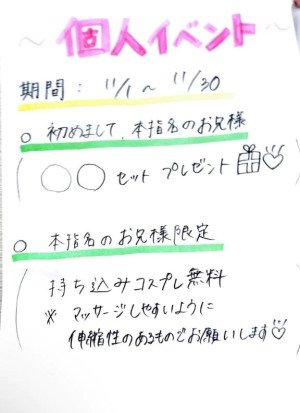 ～個人イベント～
期間: 11/1～11/30
○ 初めまして、本指名のお兄様
(○○セットプレゼント
○ 本指名のお兄様限定
持ち込みコスプレ無料
※ マッサージしやすいように
伸縮性のあるものでお願いします♡